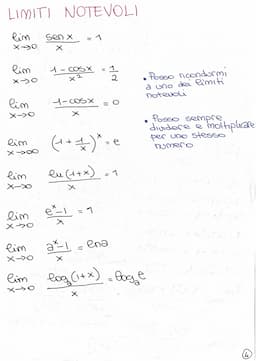 LIMITI NOTEVOLI
lim x→0 sen x / x = 1
lim x→0 1-cosx / x² = 1/2
lim x→0 1-cosx / x = 0
lim x→∞ (1+1/x)^x = e
lim x→0 ln(1+x) / x = 1
lim x→0 e^x-1 / x = 1
lim x→0 a^x-1 / x = lna
lim x→0 logₐ(1+x) / x = logₐe
• Posso ricondurmi
a uno dei limiti
notevoli
• Posso sempre
dividere e moltiplicare
per uno stesso
numero
4